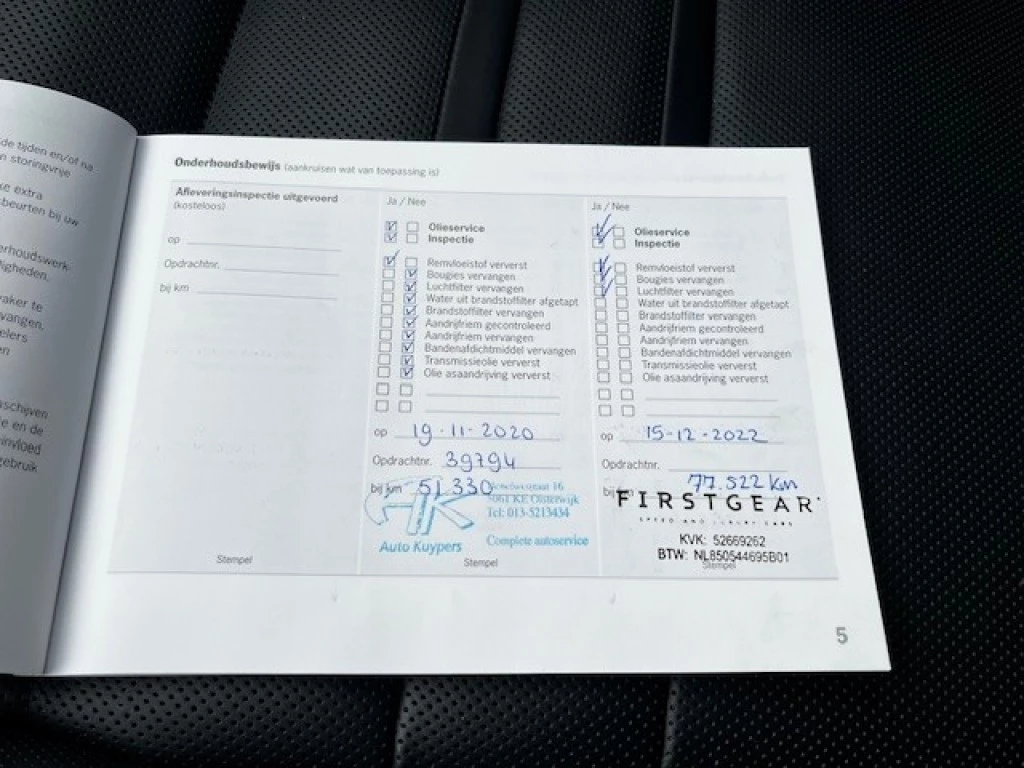 de tijden en/of na
n storingvrije
ke extra
sbeurten bij uw
erhoudswerk-
ligheden.
raker te
vangen.
elers
en
aschijven
e en de
einvloed
gebruik
Onderhoudsbewijs (aankruisen wat van toepassing is)
Afleveringsinspectie uitgevoerd
(kosteloos)
op
Opdrachtnr.
bij km
Stempel
Ja / Nee
Olieservice
Inspectie
Remvloeistof ververst
Bougies vervangen
Luchtfilter vervangen
Water uit brandstoffilter afgetapt
Brandstoffilter vervangen
Aandrijfriem gecontroleerd
Aandrijfriem vervangen
Bandenafdichtmiddel vervangen
Transmissieolie ververst
Olie asaandrijving ververst
op 19-11-2020
Opdrachtnr. 39794
bij km 51330
16
5061 KE Oisterwijk
Tel: 013-5213434
AK
Auto Kuypers
Complete autoservice
Stempel
Ja / Nee
Olieservice
Inspectie
Remvloeistof ververst
Bougies vervangen
Luchtfilter vervangen
Water uit brandstoffilter afgetapt
Brandstoffilter vervangen
Aandrijfriem gecontroleerd
Aandrijfriem vervangen
Bandenafdichtmiddel vervangen
Transmissieolie ververst
Olie asaandrijving ververst
op 15-12-2022
Opdrachtnr.
bij km 77.522 km
FIRSTGEAR
SPEED AND LUXURY CARS
KVK: 52669262
BTW: NL850544695B01
Stempel
5